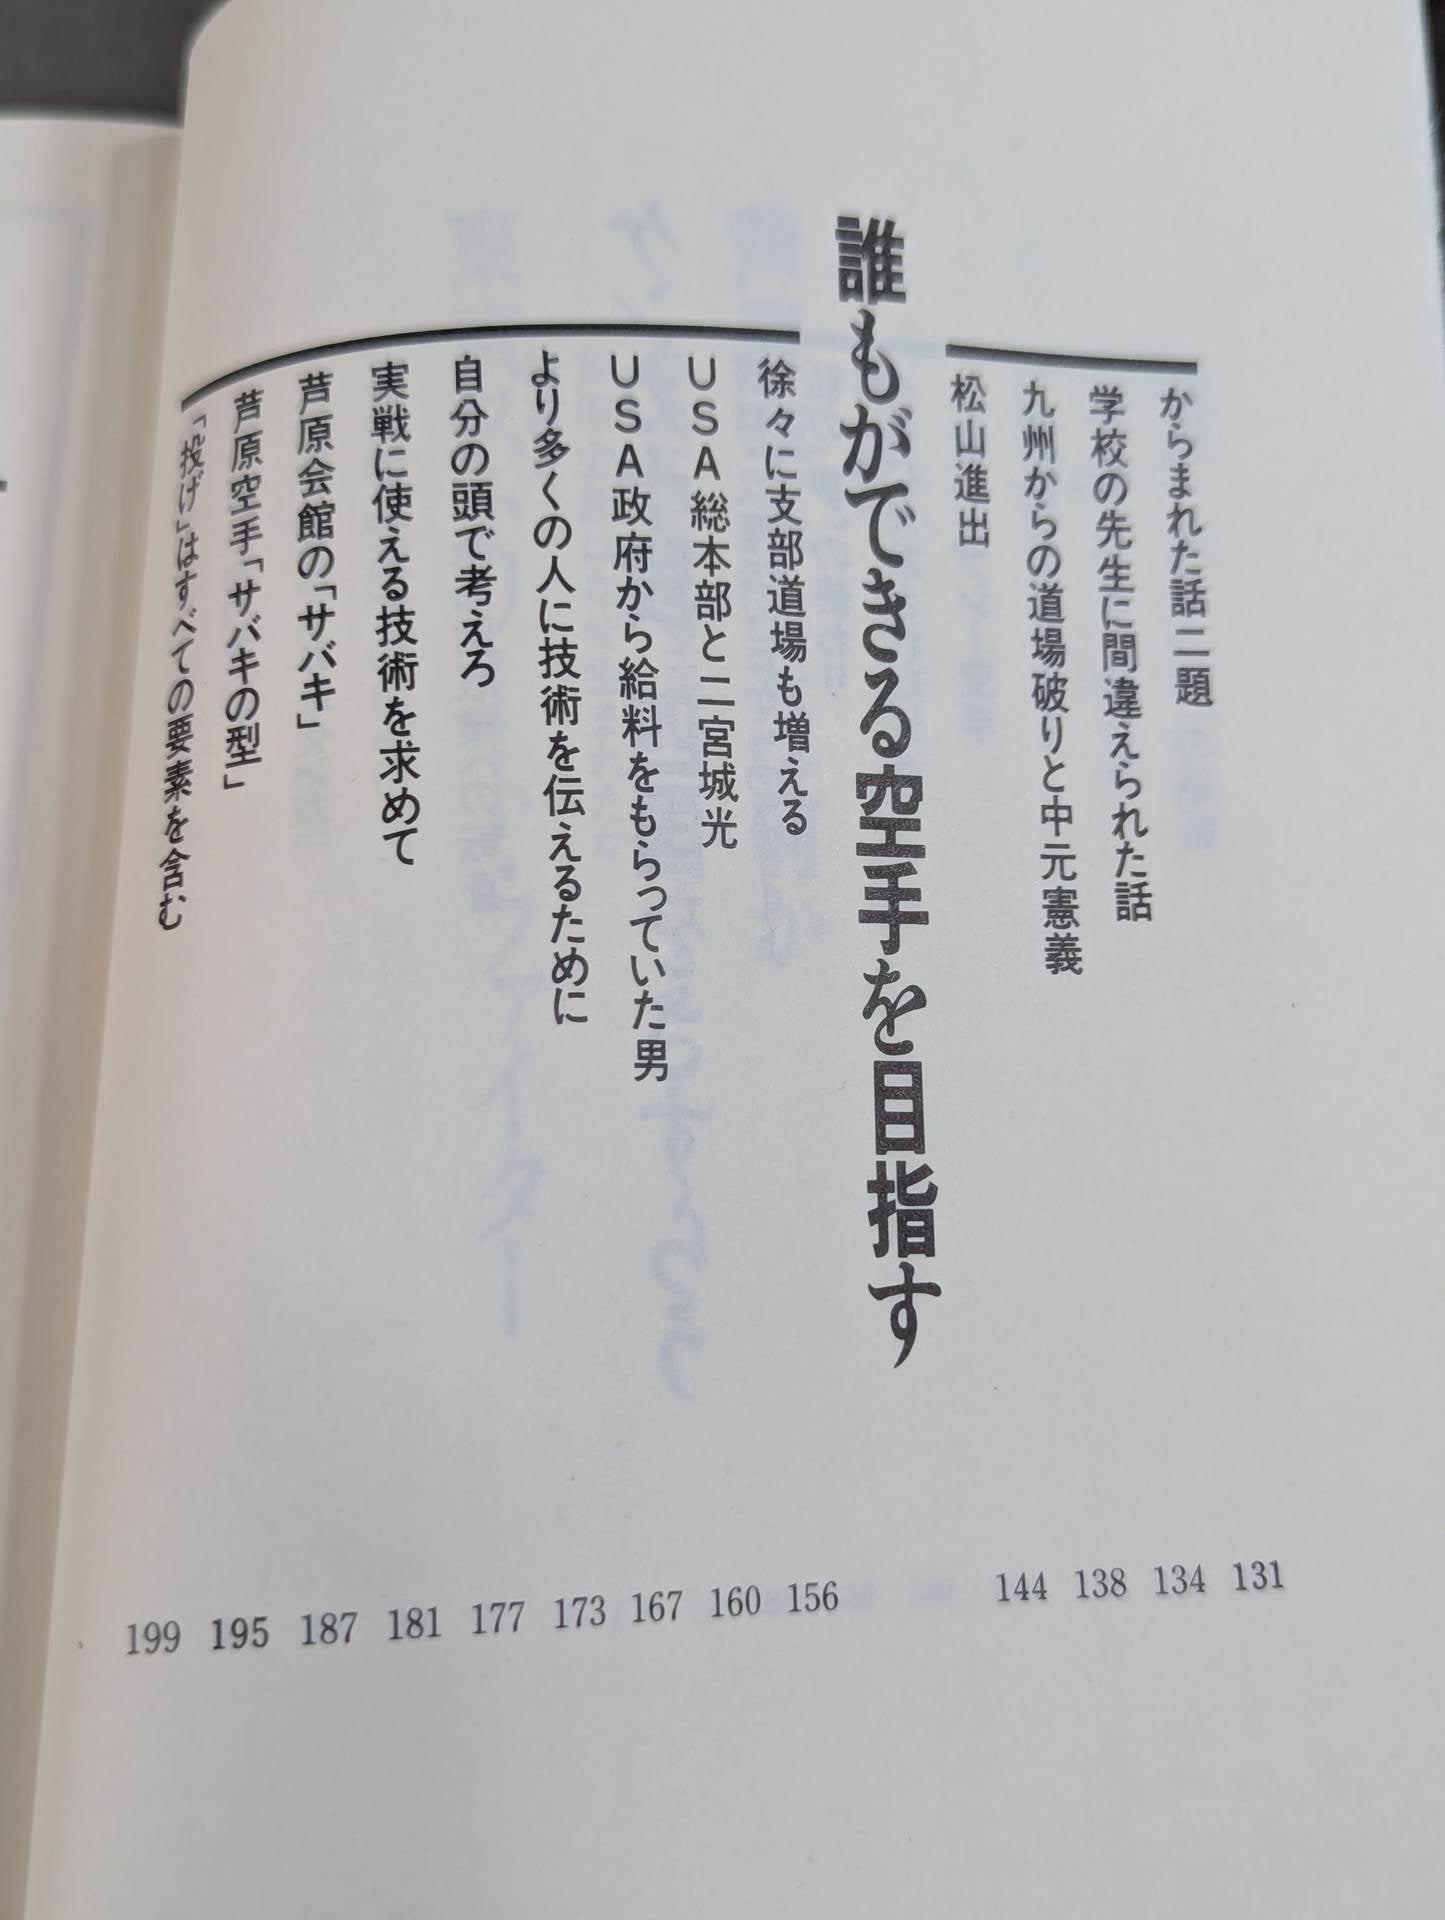 からまれた話二題 131
学校の先生に間違えられた話 134
九州からの道場破りと中元憲義 138
松山進出 144
誰もができる空手を目指す
徐々に支部道場も増える 156
USA総本部と二宮城光 160
USA政府から給料をもらっていた男 167
より多くの人に技術を伝えるために 173
自分の頭で考えろ 177
実戦に使える技術を求めて 181
芦原会館の「サバキ」 187
芦原空手「サバキの型」 195
「投げ」はすべての要素を含む 199